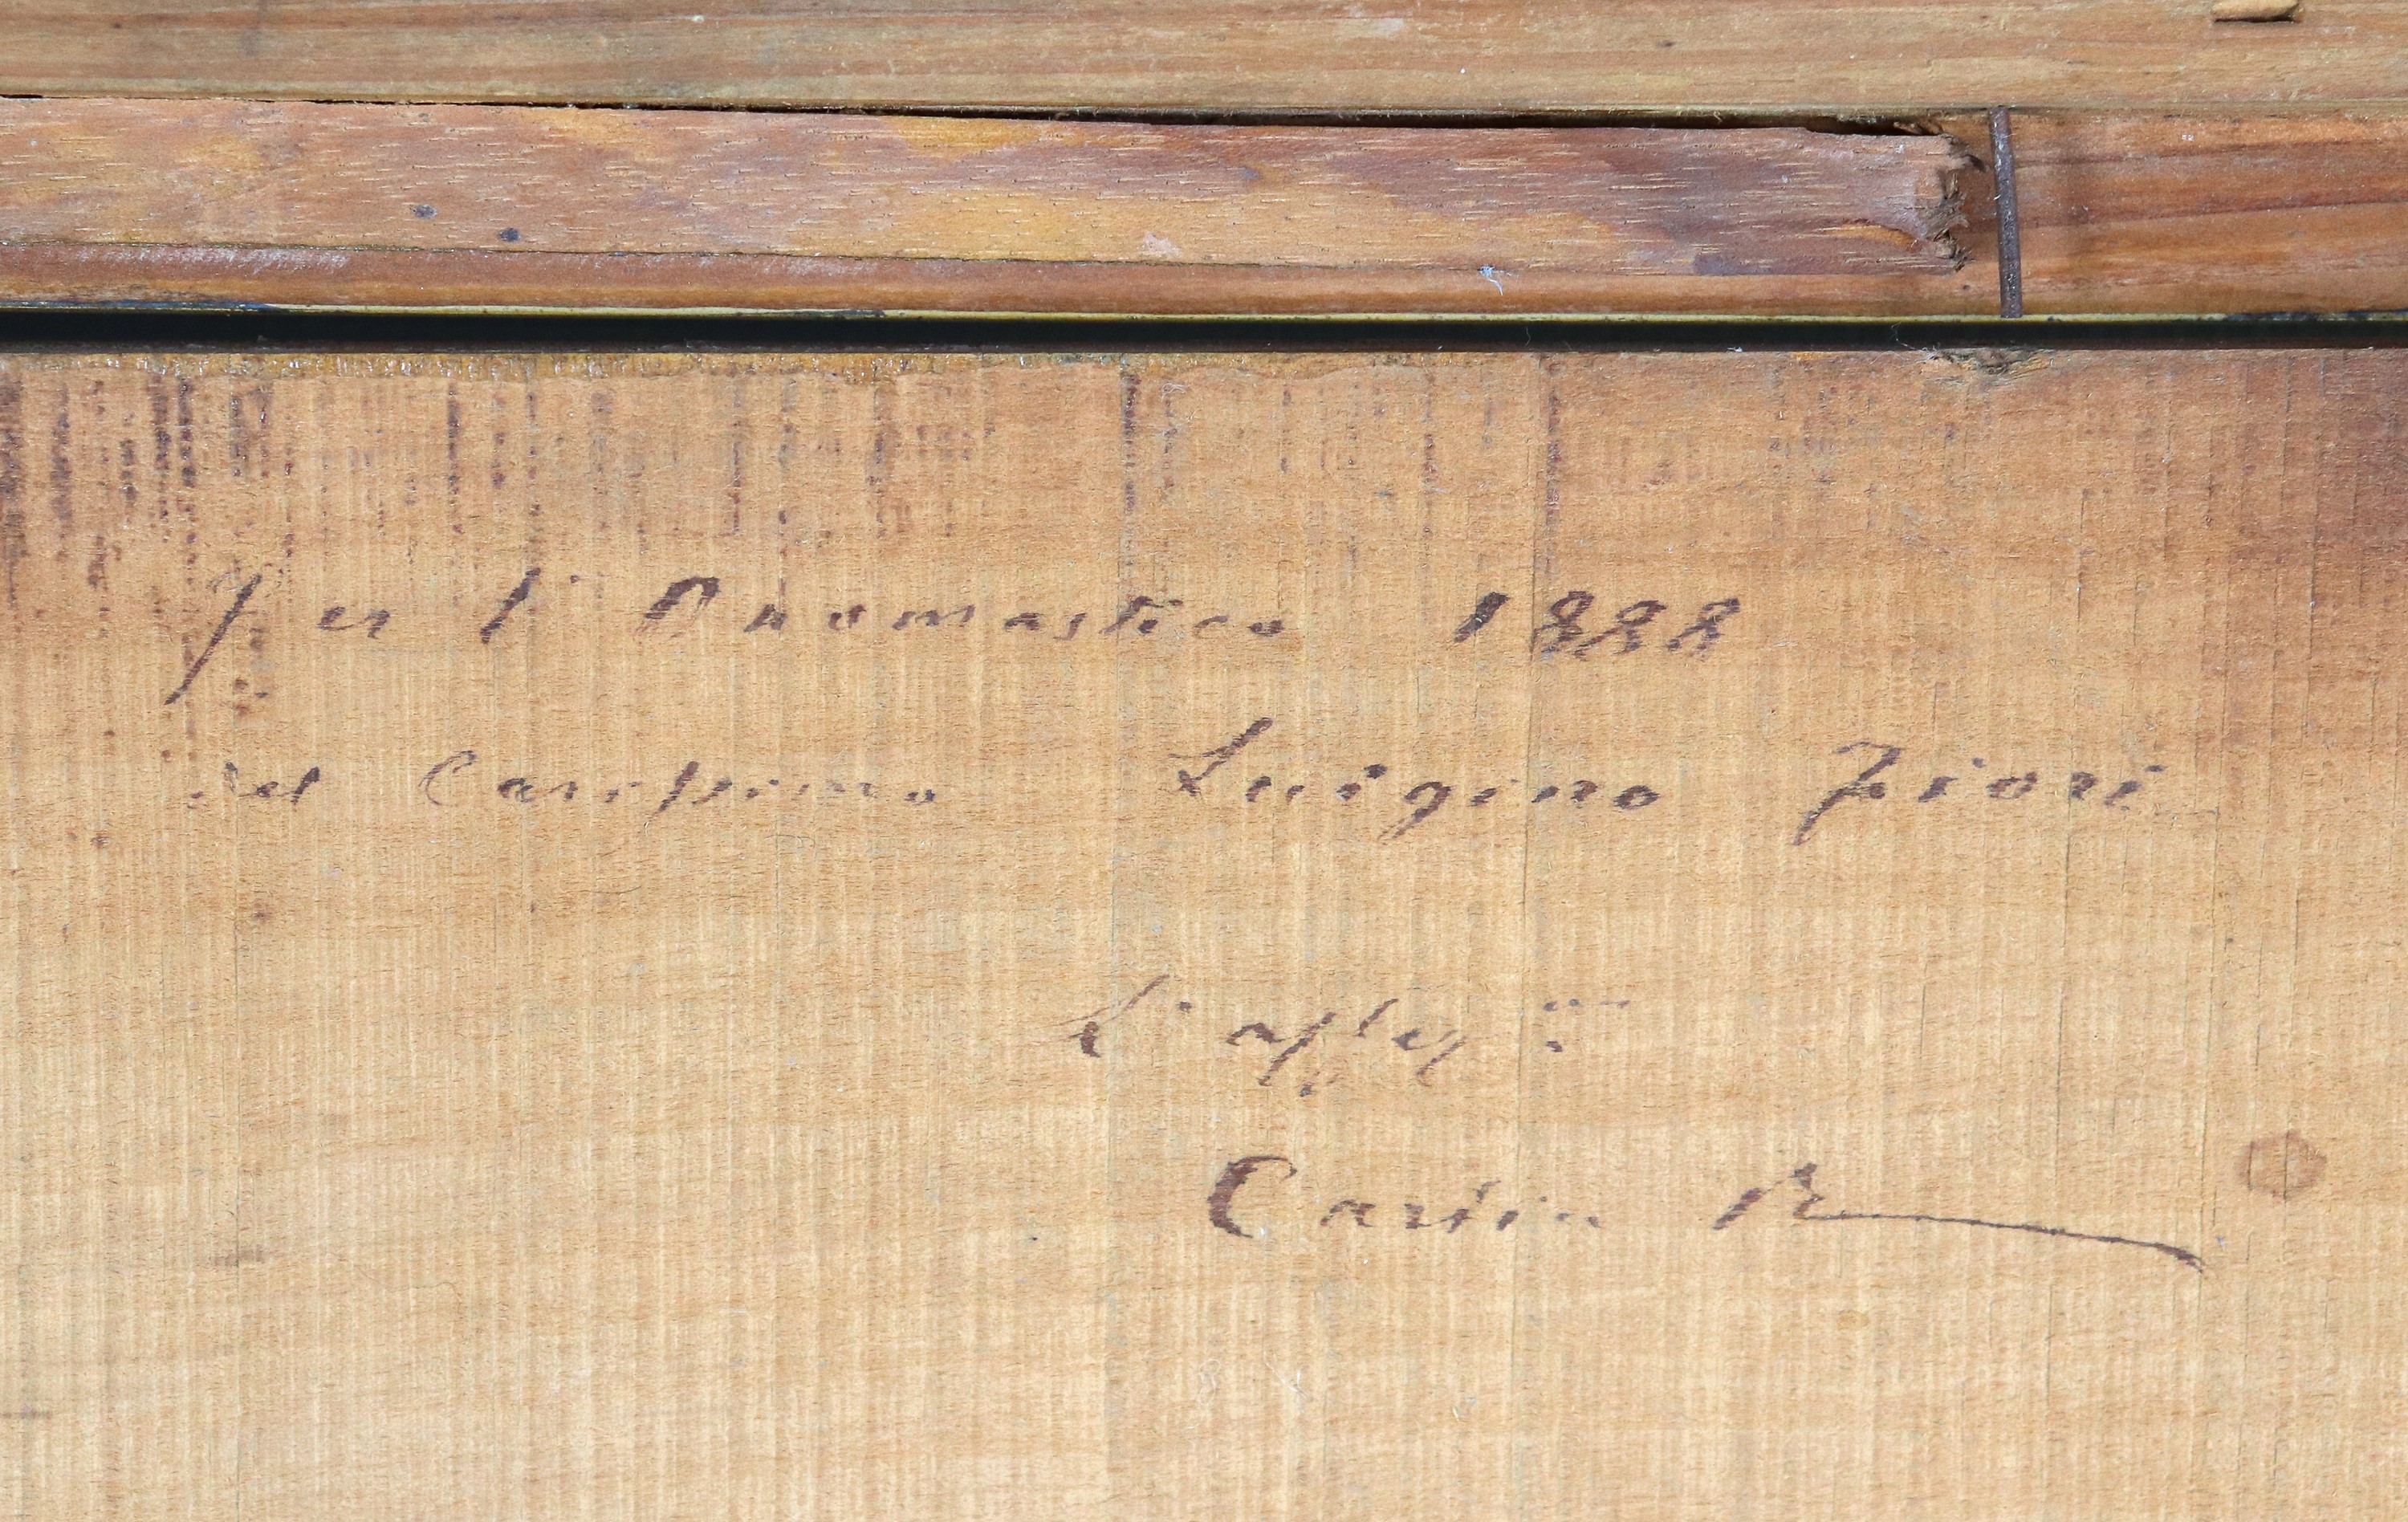 Per l' Onomastico 1888
del Carissimo Luigino Fiori
L'
Carlin